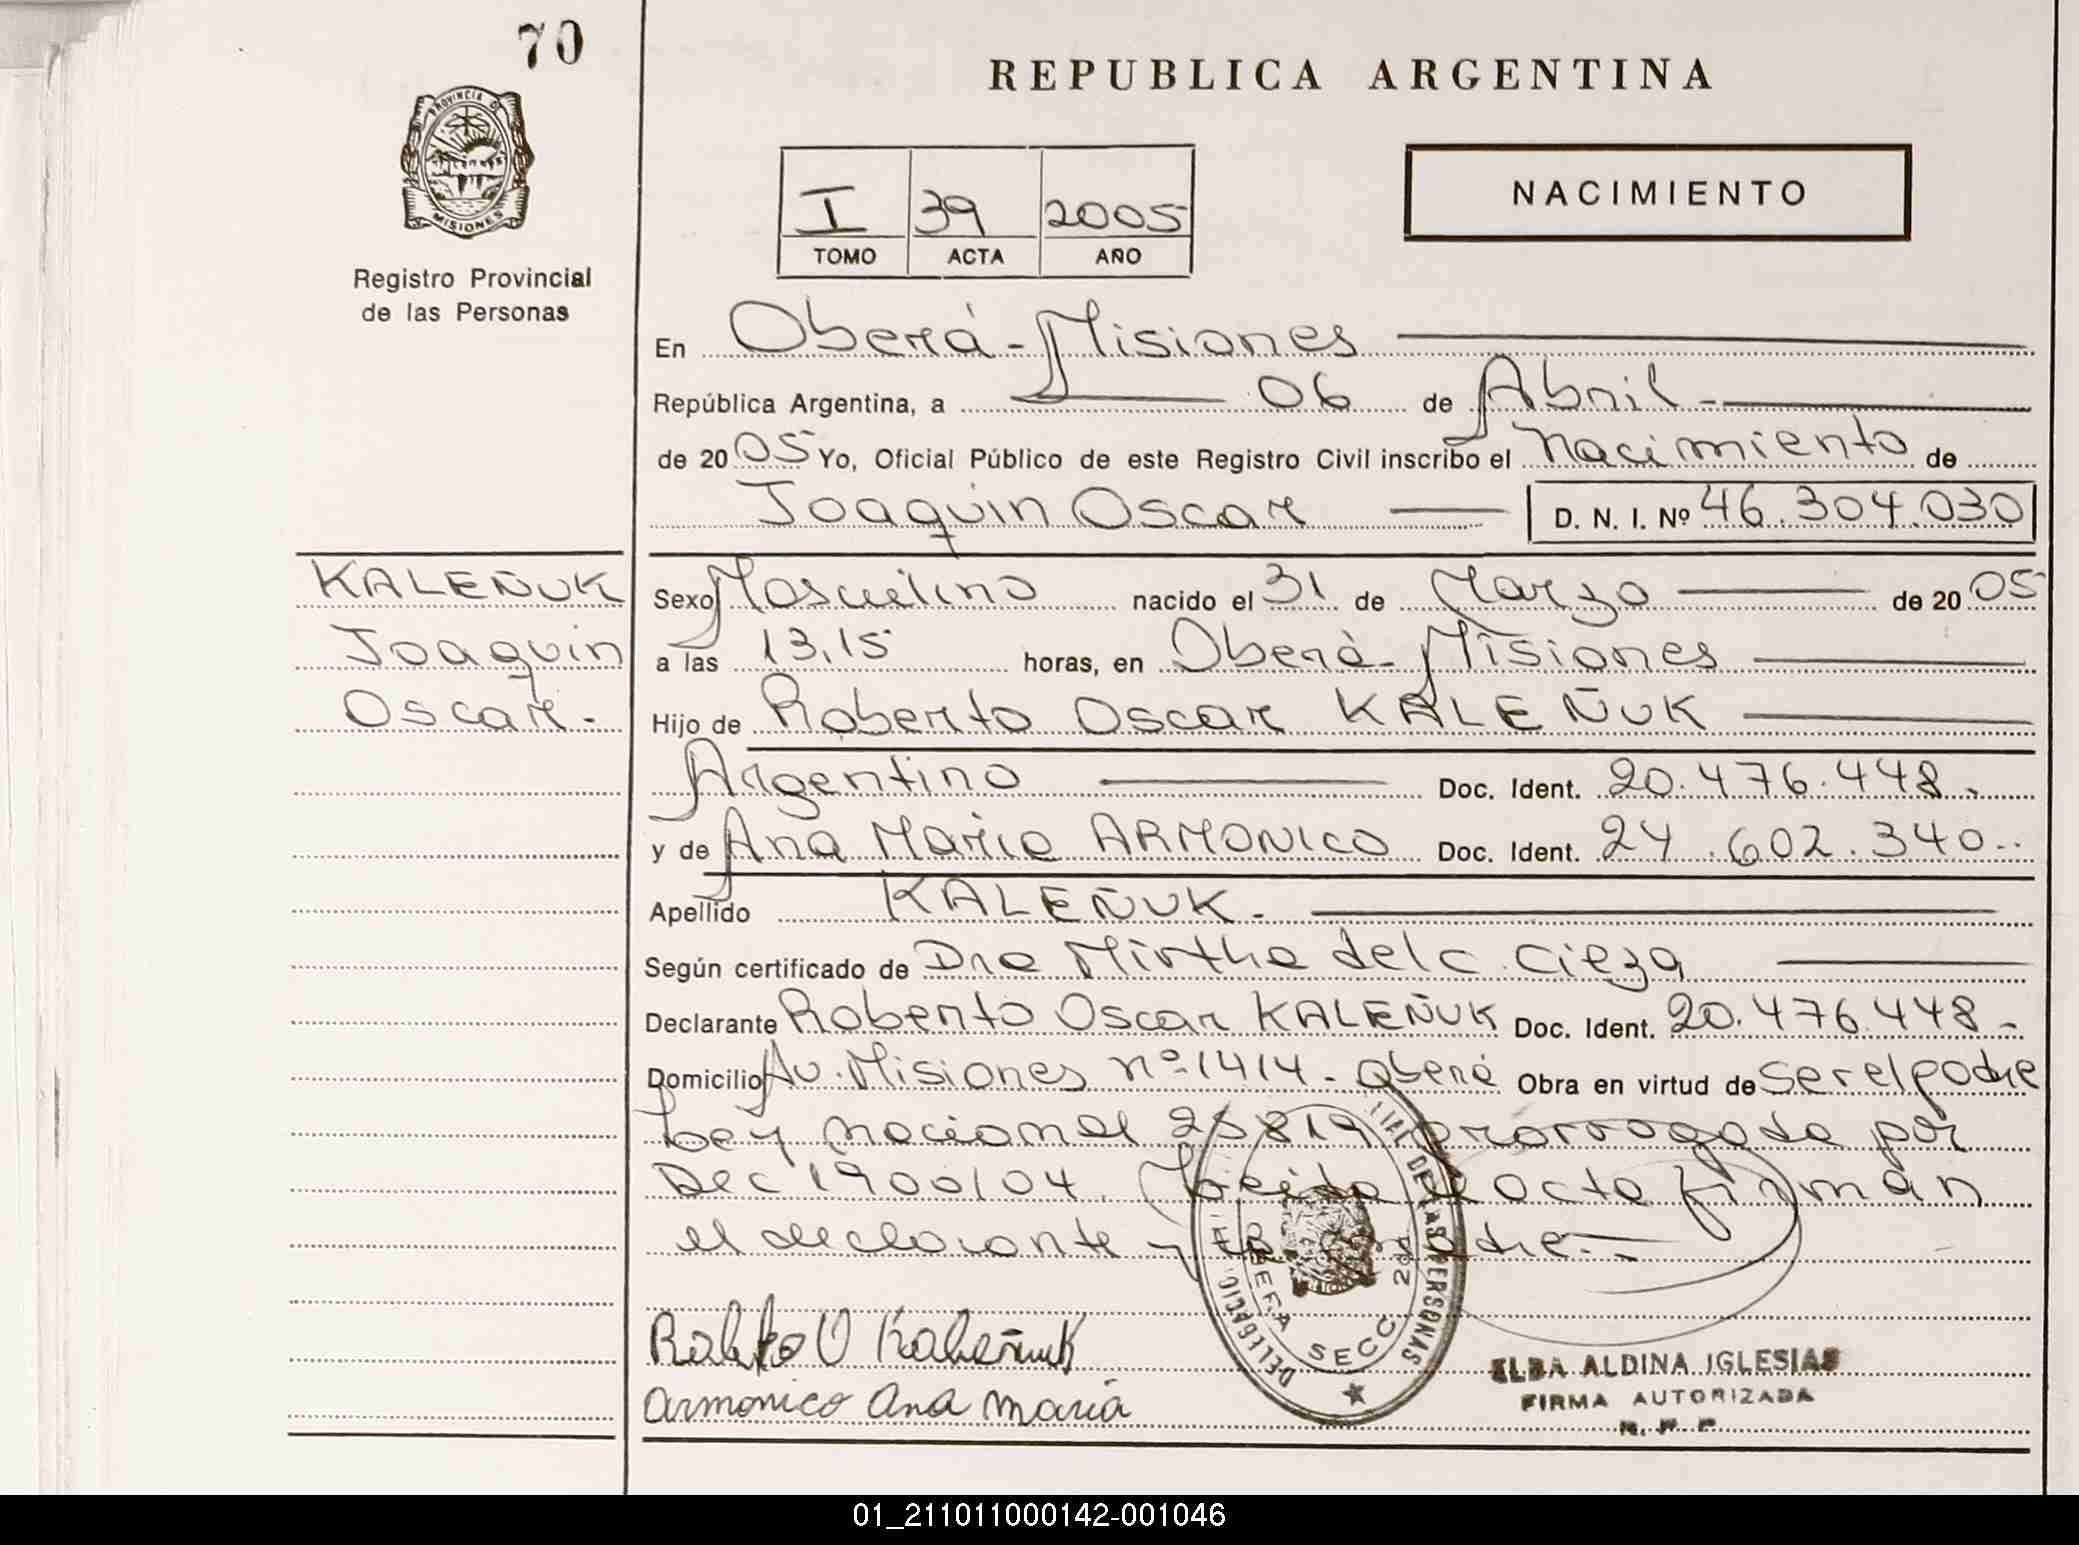 70
REPUBLICA ARGENTINA
PROVINCIA D
MISIONES
Registro Provincial
de las Personas
I 39 2005
TOMO ACTA AÑO
NACIMIENTO
En Oberá - Misiones
República Argentina, a 06 de Abril -
de 2005 Yo, Oficial Público de este Registro Civil inscribo el Nacimiento de
Joaquin Oscar D. N. I. Nº 46.304.030
KALEÑUK
Joaquin
Oscar.-
Sexo Masculino nacido el 31 de Marzo de 2005
a las 13,15 horas, en Oberá - Misiones
Hijo de Roberto Oscar KALEÑUK
Argentino Doc. Ident. 20.476.448.-
y de Ana Maria ARMONICO Doc. Ident. 24.602.340..
Apellido KALEÑUK.
Según certificado de Dra Mirtha del c. Cieza
Declarante Roberto Oscar KALEÑUK Doc. Ident. 20.476.448.-
Domicilio Av. Misiones nº 1414 - Oberá Obra en virtud de ser el padre
Ley nacional 25819 prorrogada por
Dec 1900/04. Leida acta firman
el declarante y la madre.-
DELEGACIO DE LAS PERSONAS
OBERA SECC 2da
Roberto O Kaleñuk
Armonico Ana Maria
ELBA ALDINA IGLESIAS
FIRMA AUTORIZADA
R. P. P.
01_211011000142-001046